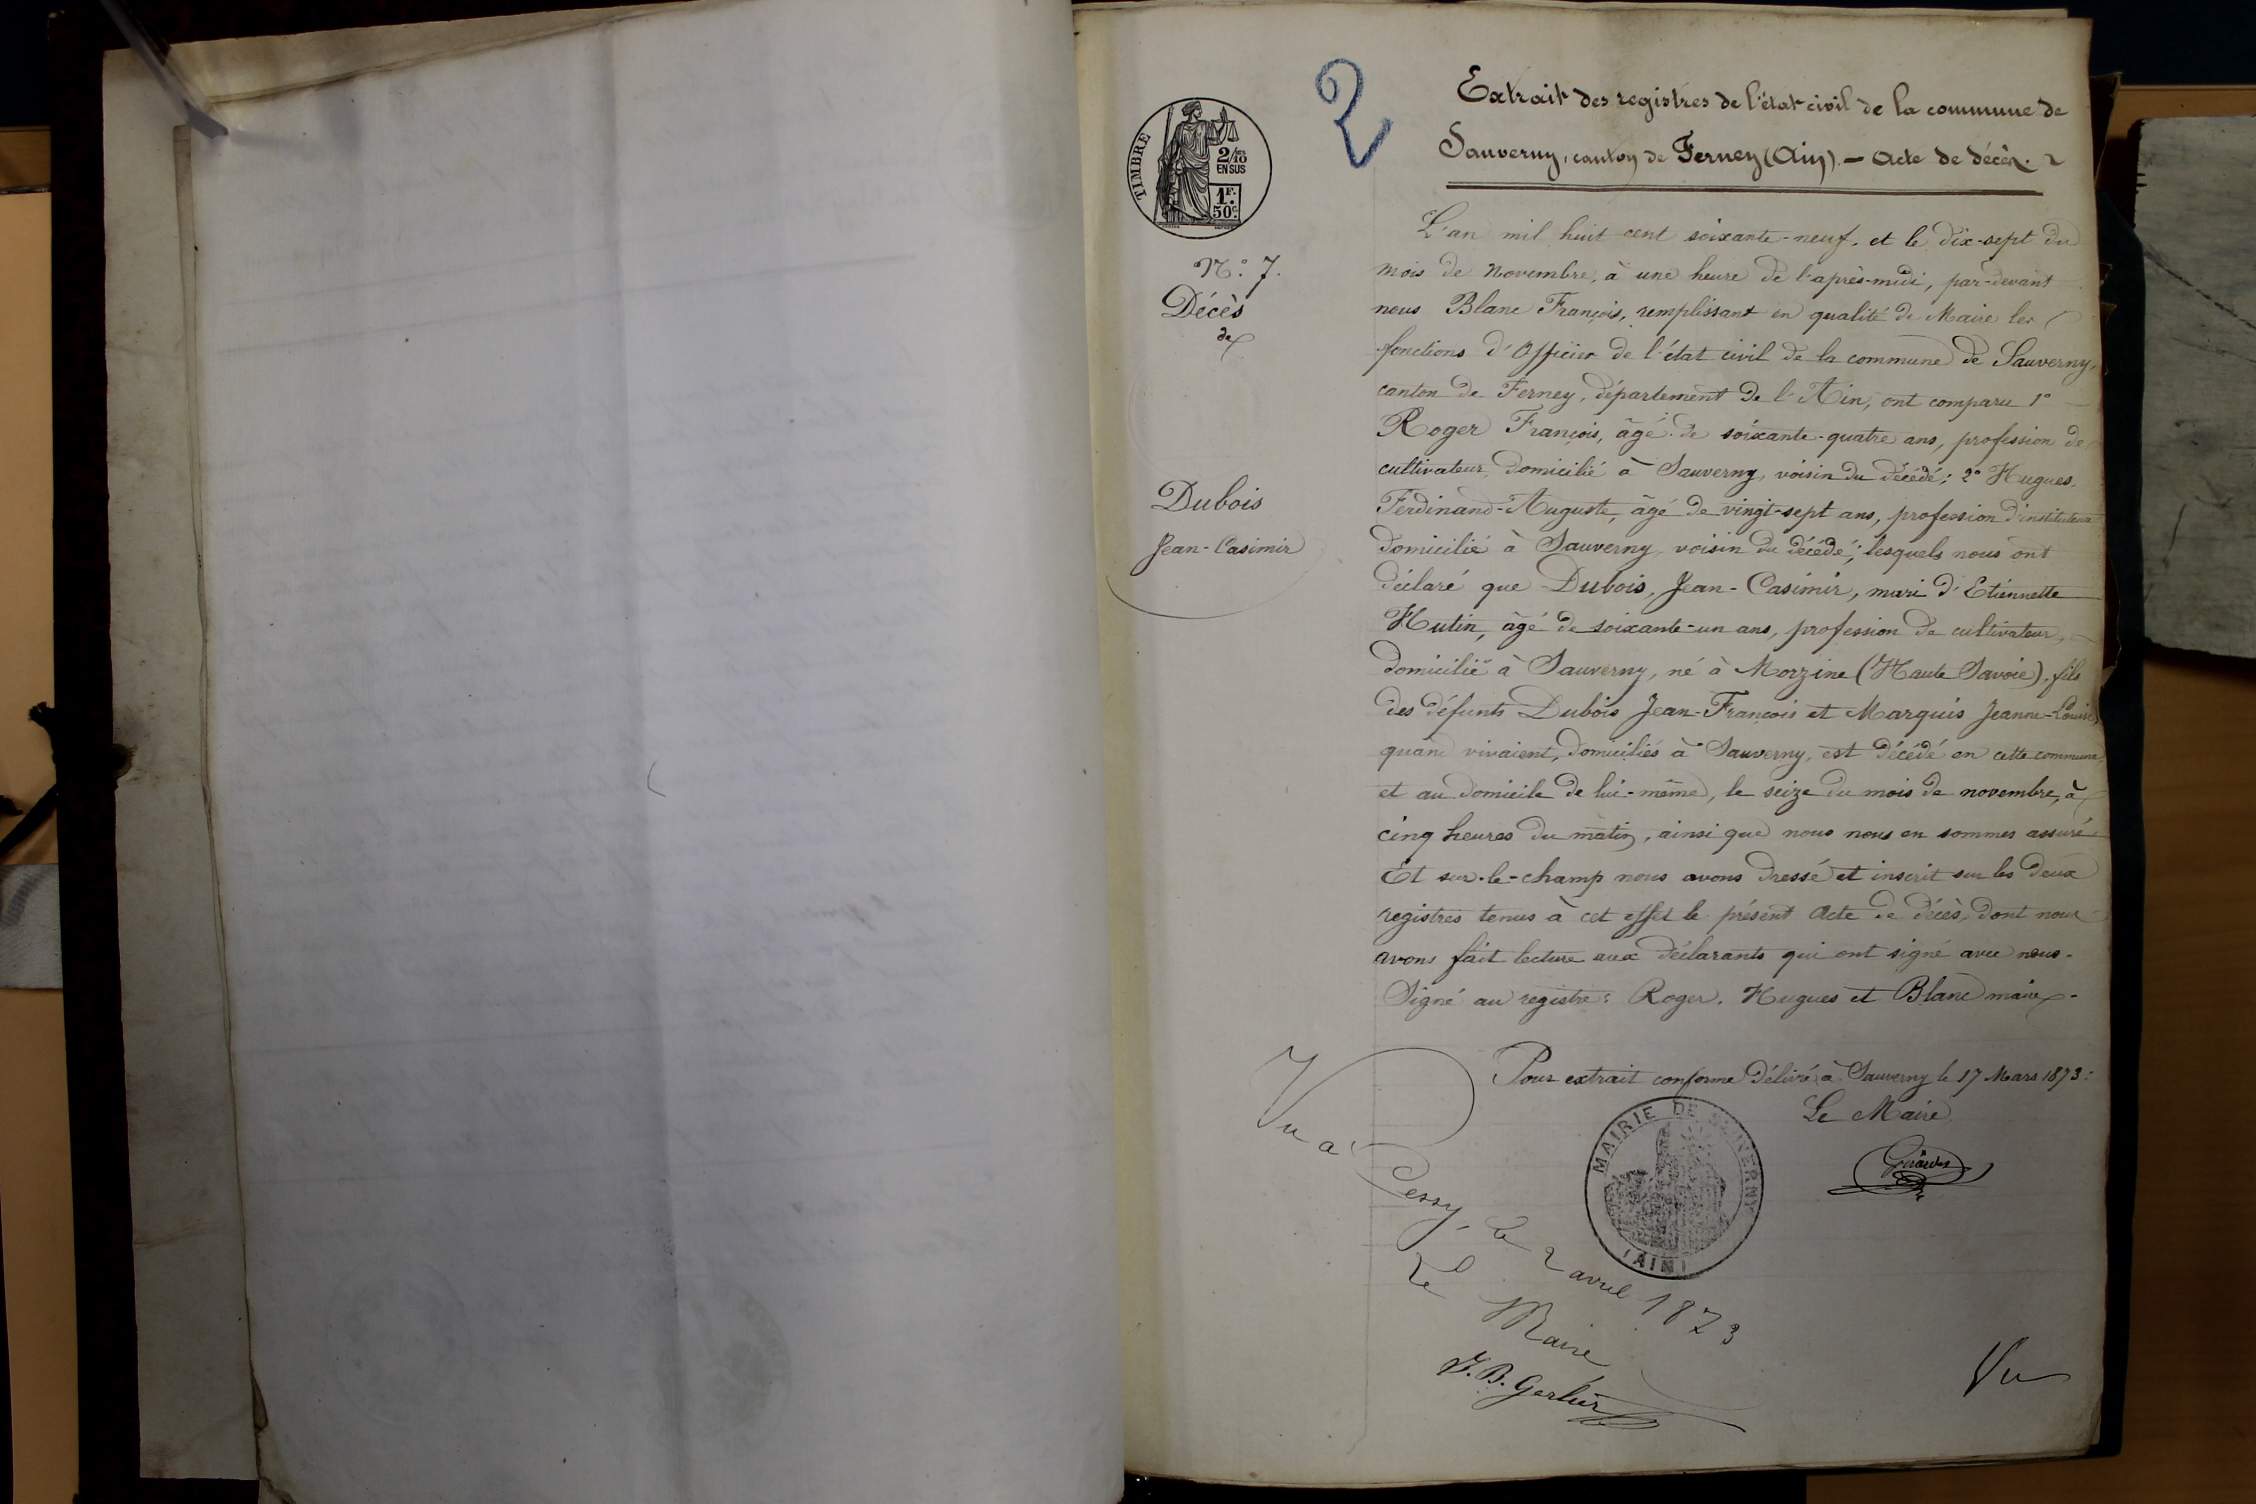 2
Extrait des registres de l'état civil de la commune de
Sauverny, canton de Ferney (Ain). — Acte de décès. 2
TIMBRE
2/10 EN SUS
1F. 50c.
N.° 7.
Décès
de
Dubois
Jean-Casimir
L'an mil huit cent soixante-neuf, et le dix-sept du
mois de Novembre, à une heure de l'après-midi, par-devant
nous Blanc François, remplissant en qualité de Maire les
fonctions d'Officier de l'état civil de la commune de Sauverny,
canton de Ferney, département de l'Ain, ont comparu 1°
Roger François, âgé de soixante-quatre ans, profession de
cultivateur domicilié à Sauverny, voisin du décédé; 2° Hugues
Ferdinand-Auguste, âgé de vingt-sept ans, profession d'instituteur
domicilié à Sauverny, voisin du décédé; lesquels nous ont
déclaré que Dubois, Jean-Casimir, mari d'Etiennette
Hutin, âgé de soixante-un ans, profession de cultivateur,
domicilié à Sauverny, né à Morzine (Haute Savoie), fils
des défunts Dubois Jean-François et Marquis Jeanne-Louise
quand vivaient, domiciliés à Sauverny, est décédé en cette commune,
et au domicile de lui-même, le seize du mois de novembre, à
cinq heures du matin, ainsi que nous nous en sommes assuré
Et sur-le-champ nous avons dressé et inscrit sur les deux
registres tenus à cet effet le présent Acte de décès, dont nous
avons fait lecture aux déclarants qui ont signé avec nous.
Signé au registre: Roger. Hugues et Blanc maire.
Pour extrait conforme délivré à Sauverny le 17 Mars 1873:
Le Maire
MAIRIE DE SAUVERNY
(AIN)
Vu à Cessy, le 2 avril 1873
Le Maire
J. B. Gerlier
Vu